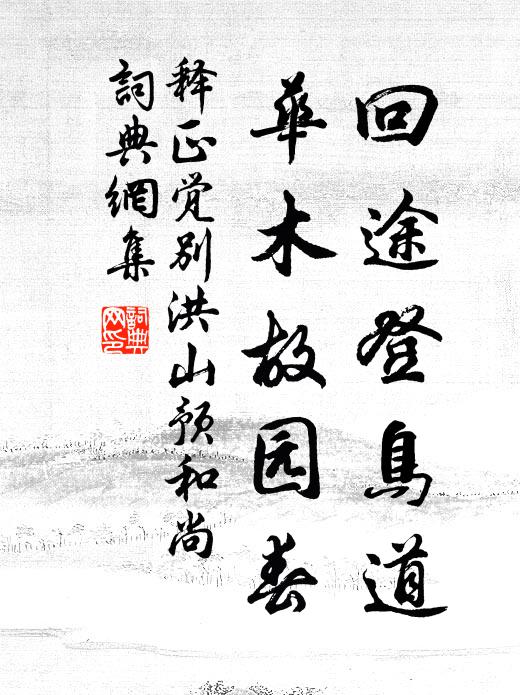 回途登鳥道
華木故园春
释正觉别洪山预和尚
詞典網集
詞典网印